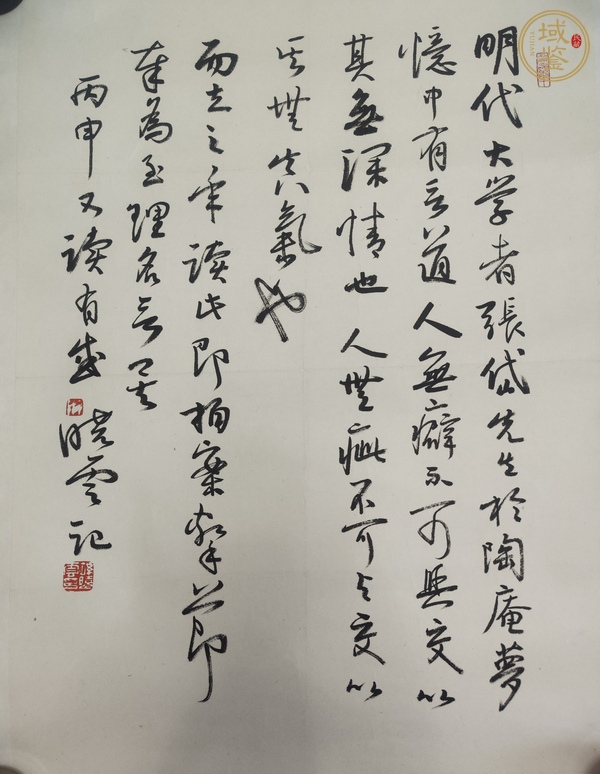 明代大学者張岱先生於陶庵夢
憶中有言道人無癖不可與交以
其無深情也人無疵不可与交以
其無真氣也
而立之年读此即拍案即
奉為至理名言矣
丙申又读有感 晓雲記
域鉴